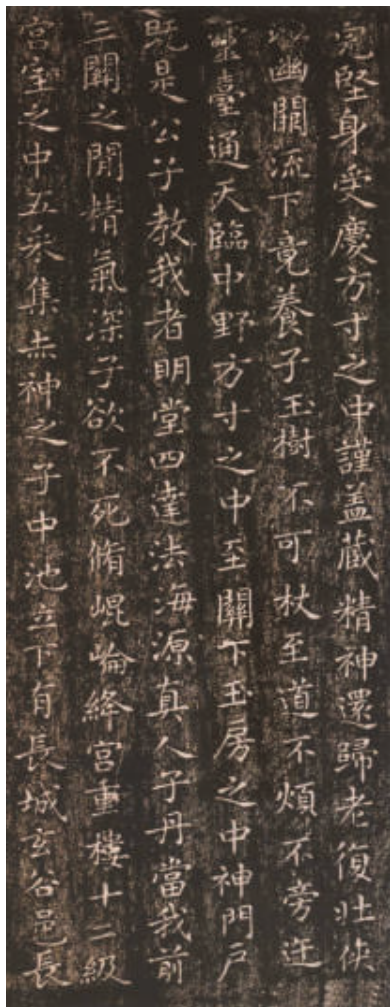 完堅身受慶方寸之中謹盖藏精神還歸老復壯俠
以幽闕流下竟養子玉樹不可杖至道不煩不旁迕
靈臺通天臨中野方寸之中至關下玉房之中神門戶
既是公子教我者明堂四達法海源真人子丹當我前
三關之間精氣深子欲不死脩崐崘絳宮重樓十二級
宮室之中五采集赤神之子中池立下有長城玄谷邑長